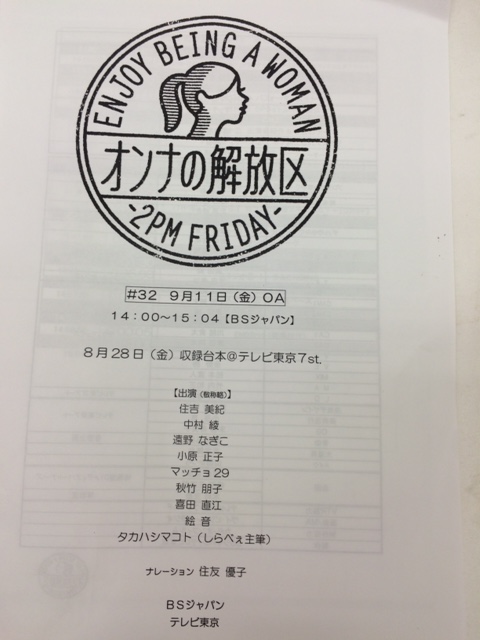 ENJOY BEING A WOMAN
オンナの解放区
-2PM FRIDAY-
#32 9月11日(金)OA
14:00~15:04【BSジャパン】
8月28日(金)収録台本@テレビ東京7st.
【出演(敬称略)】
住吉 美紀
中村 綾
遠野 なぎこ
小原 正子
マッチョ29
秋竹 朋子
喜田 直江
絵 音
タカハシマコト(しらべぇ主筆)
ナレーション 住友 優子
BSジャパン
テレビ東京